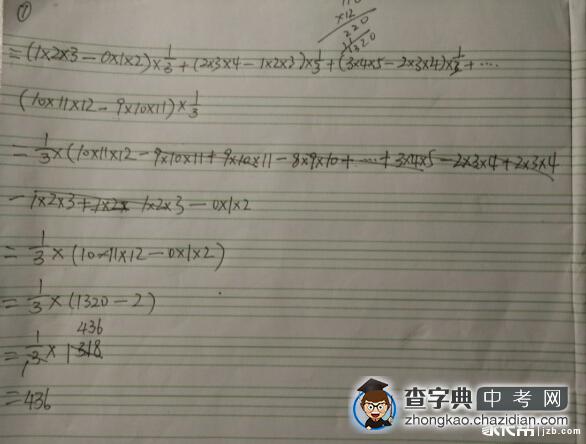 ①
110
×12
220
11
1320
=(1×2×3-0×1×2)×1/3+(2×3×4-1×2×3)×1/3+(3×4×5-2×3×4)×1/3+……
(10×11×12-9×10×11)×1/3
=1/3×(10×11×12-9×10×11+9×10×11-8×9×10+……+3×4×5-2×3×4+2×3×4
-1×2×3+1×2× 1×2×3-0×1×2
=1/3×(10×11×12-0×1×2)
=1/3×(1320-2)
436
=1/3×1318
=436
查字典 中考网
zhongkao.chazidian.com
家长帮 jzb.com